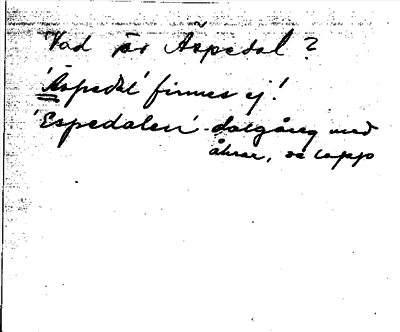 Vad är Äspedal?
'Äspedal' finnes ej!
'Espedalen' dalgång med
åkrar, se lapp